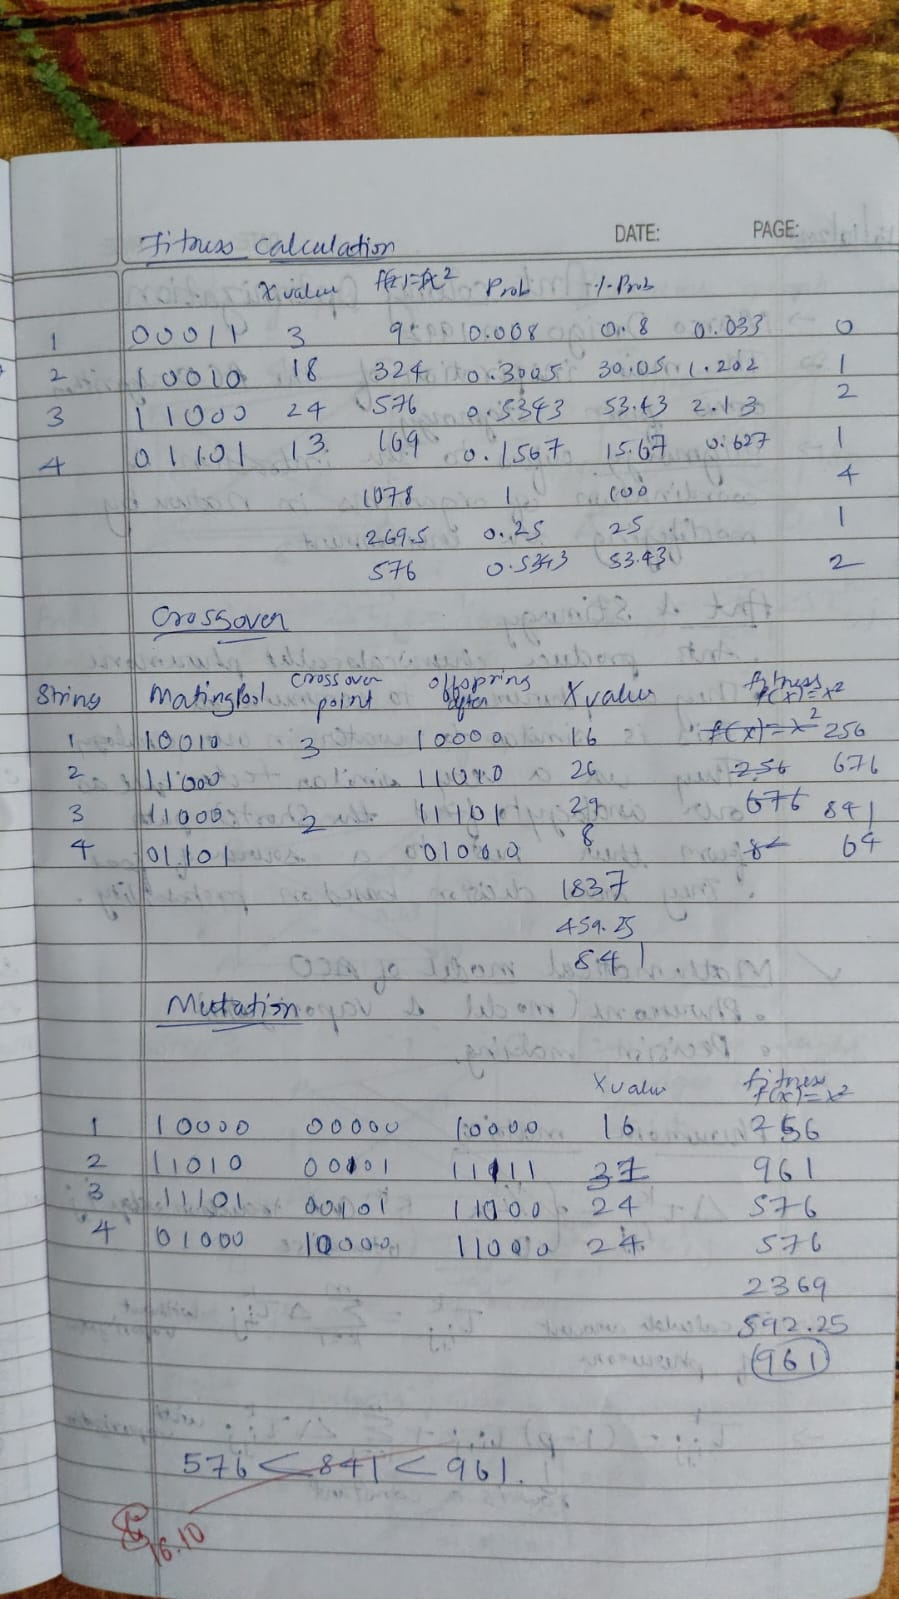 DATE: PAGE:
Fitness calculation
X value f(x)=x² Prob %Prob
1 00011 3 9 0.008 0.8 0.033 0
2 10010 18 324 0.3005 30.05 1.202 1
3 11000 24 576 0.5343 53.43 2.13 2
4 01101 13 169 0.1567 15.67 0.627 1
1078 1 100 4
269.5 0.25 25 1
576 0.5343 53.43 2
Crossover
String Mating Pool crossover point offspring after X value fitness f(x)=x²
1 10010 3 10000 16 f(x)=x² 256
2 11000 11010 26 256 676
3 11000 2 11101 29 676 841
4 01101 01000 8 64
1837
459.25
841
Mutation
X value fitness f(x)=x²
1 10000 00000 10000 16 256
2 11010 00101 11111 31 961
3 11101 00101 11000 24 576
4 01000 10000 11000 24 576
2369
592.25
961
576 < 841 < 961.
16.10